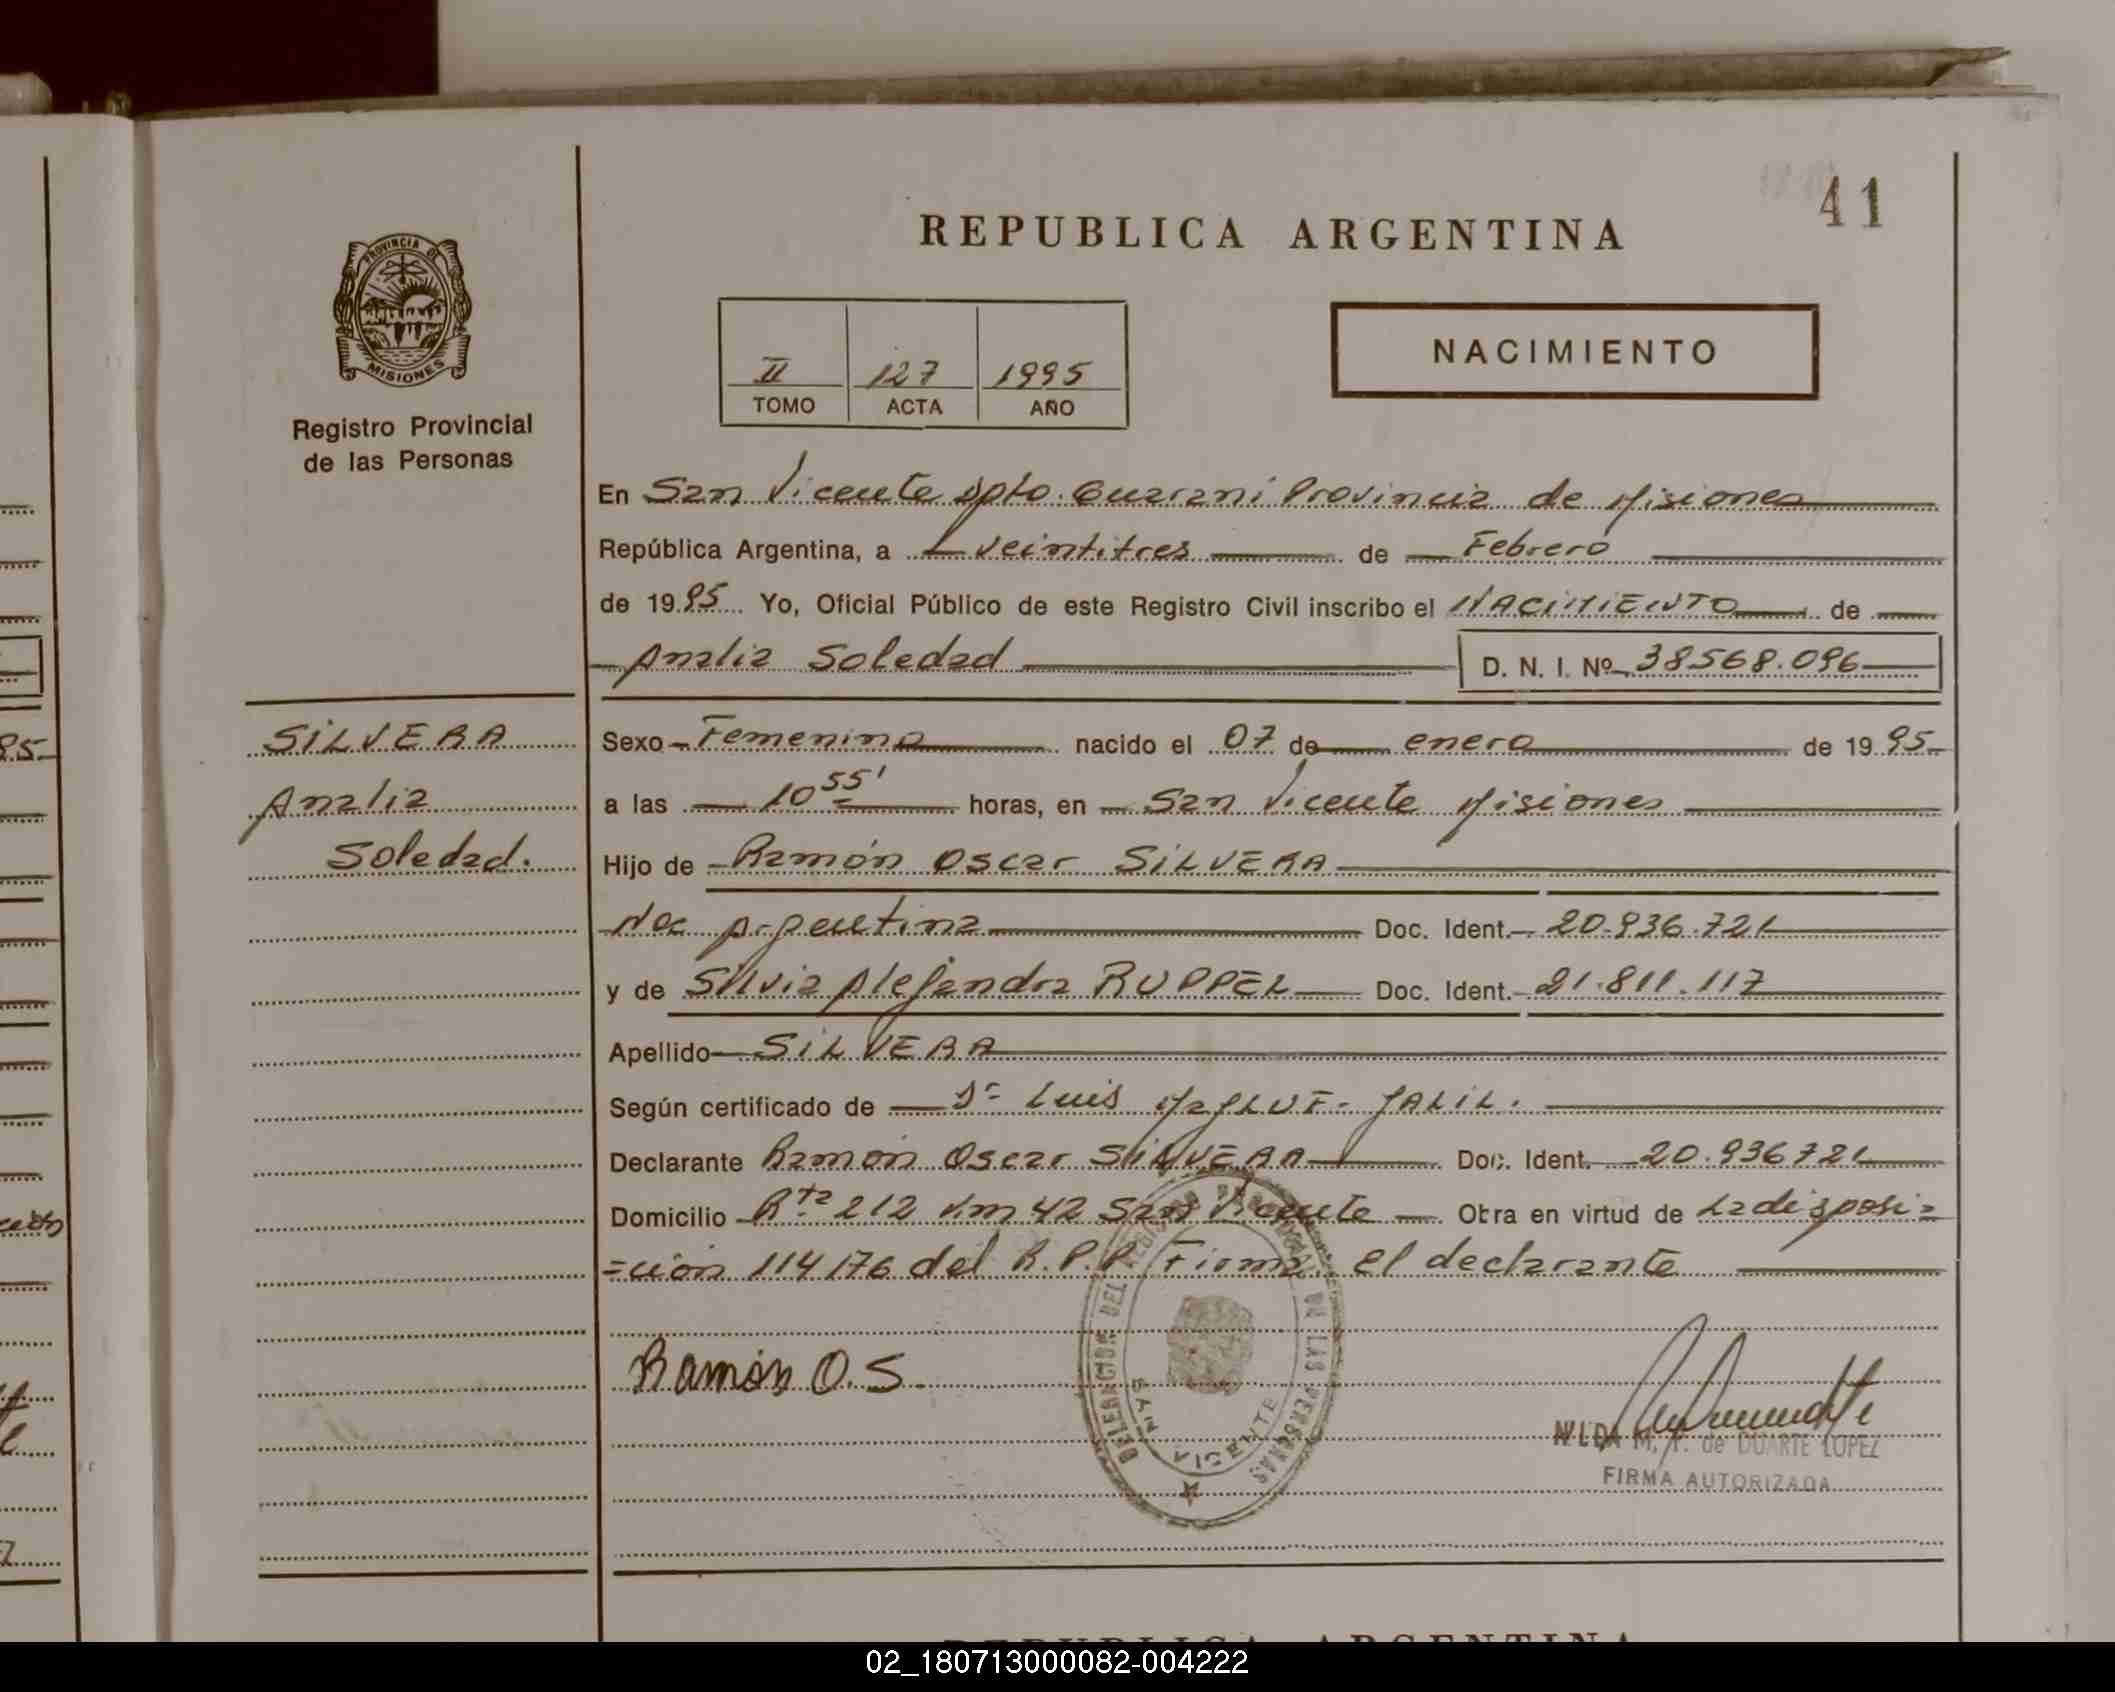 41
REPUBLICA ARGENTINA
PROVINCIA DE
MISIONES
Registro Provincial
de las Personas
II 127 1995
TOMO ACTA AÑO
NACIMIENTO
En San Vicente Dpto. Guarani Provincia de Misiones
República Argentina, a veintitres de Febrero
de 1995 Yo, Oficial Público de este Registro Civil inscribo el NACIMIENTO de
Analia Soledad D. N. I. Nº 38568.096
SILVERA
Analia
Soledad.
Sexo Femenino nacido el 07 de enero de 1995
a las 10 55' horas, en San Vicente Misiones
Hijo de Ramón Oscar SILVERA
Nac Argentina Doc. Ident. 20.936.721
y de Silvia Alejandra RUPPEL Doc. Ident. 21.811.117
Apellido SILVERA
Según certificado de Dr Luis JALIL.
Declarante Ramón Oscar SILVERA Doc. Ident. 20.936721
Domicilio Rta 212 Km 42 San Vicente Obra en virtud de La disposi=
=ción 114176 del R.P.P. Firma el declarante
Ramón O. S.
DELEGACION DEL REGISTRO PROVINCIAL DE LAS PERSONAS
SAN VICENTE
NILDA M. T. de DUARTE LOPEZ
FIRMA AUTORIZADA
REPUBLICA ARGENTINA
02_180713000082-004222